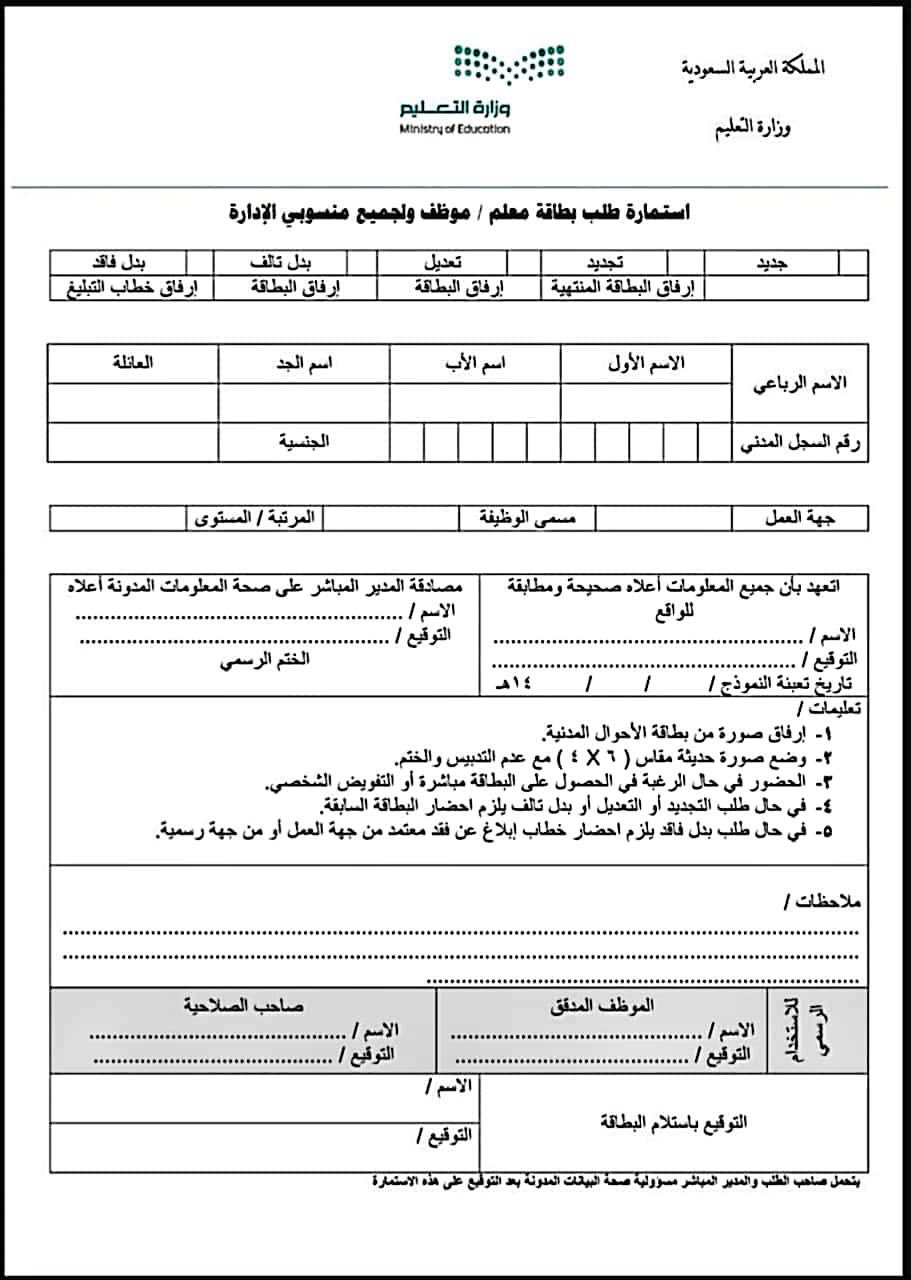 المملكة العربية السعودية
وزارة التعليم
وزارة التعـــليم
Ministry of Education
استمارة طلب بطاقة معلم / موظف ولجميع منسوبي الإدارة
جديد تجديد تعديل بدل تالف بدل فاقد
إرفاق البطاقة المنتهية إرفاق البطاقة إرفاق البطاقة إرفاق خطاب التبليغ
الاسم الرباعي الاسم الأول اسم الأب اسم الجد العائلة
رقم السجل المدني الجنسية
جهة العمل مسمى الوظيفة المرتبة / المستوى
اتعهد بأن جميع المعلومات أعلاه صحيحة ومطابقة
للواقع
الاسم / ......................................................
التوقيع / .....................................................
تاريخ تعبئة النموذج / / / ١٤هـ
مصادقة المدير المباشر على صحة المعلومات المدونة أعلاه
الاسم / .........................................................
التوقيع / ......................................................
الختم الرسمي
تعليمات /
١- إرفاق صورة من بطاقة الأحوال المدنية.
٢- وضع صورة حديثة مقاس ( ٦ X ٤ ) مع عدم التدبيس والختم.
٣- الحضور في حال الرغبة في الحصول على البطاقة مباشرة أو التفويض الشخصي.
٤- في حال طلب التجديد أو التعديل أو بدل تالف يلزم احضار البطاقة السابقة.
٥- في حال طلب بدل فاقد يلزم احضار خطاب إبلاغ عن فقد معتمد من جهة العمل أو من جهة رسمية.
ملاحظات /
..........................................................................................
..........................................................................................
..................................................
للاستخدام
الرسمي
الموظف المدقق
الاسم / ............................................
التوقيع / .........................................
صاحب الصلاحية
الاسم / ............................................
التوقيع / .........................................
التوقيع باستلام البطاقة
الاسم /
التوقيع /
يتحمل صاحب الطلب والمدير المباشر مسؤولية صحة البيانات المدونة بعد التوقيع على هذه الاستمارة